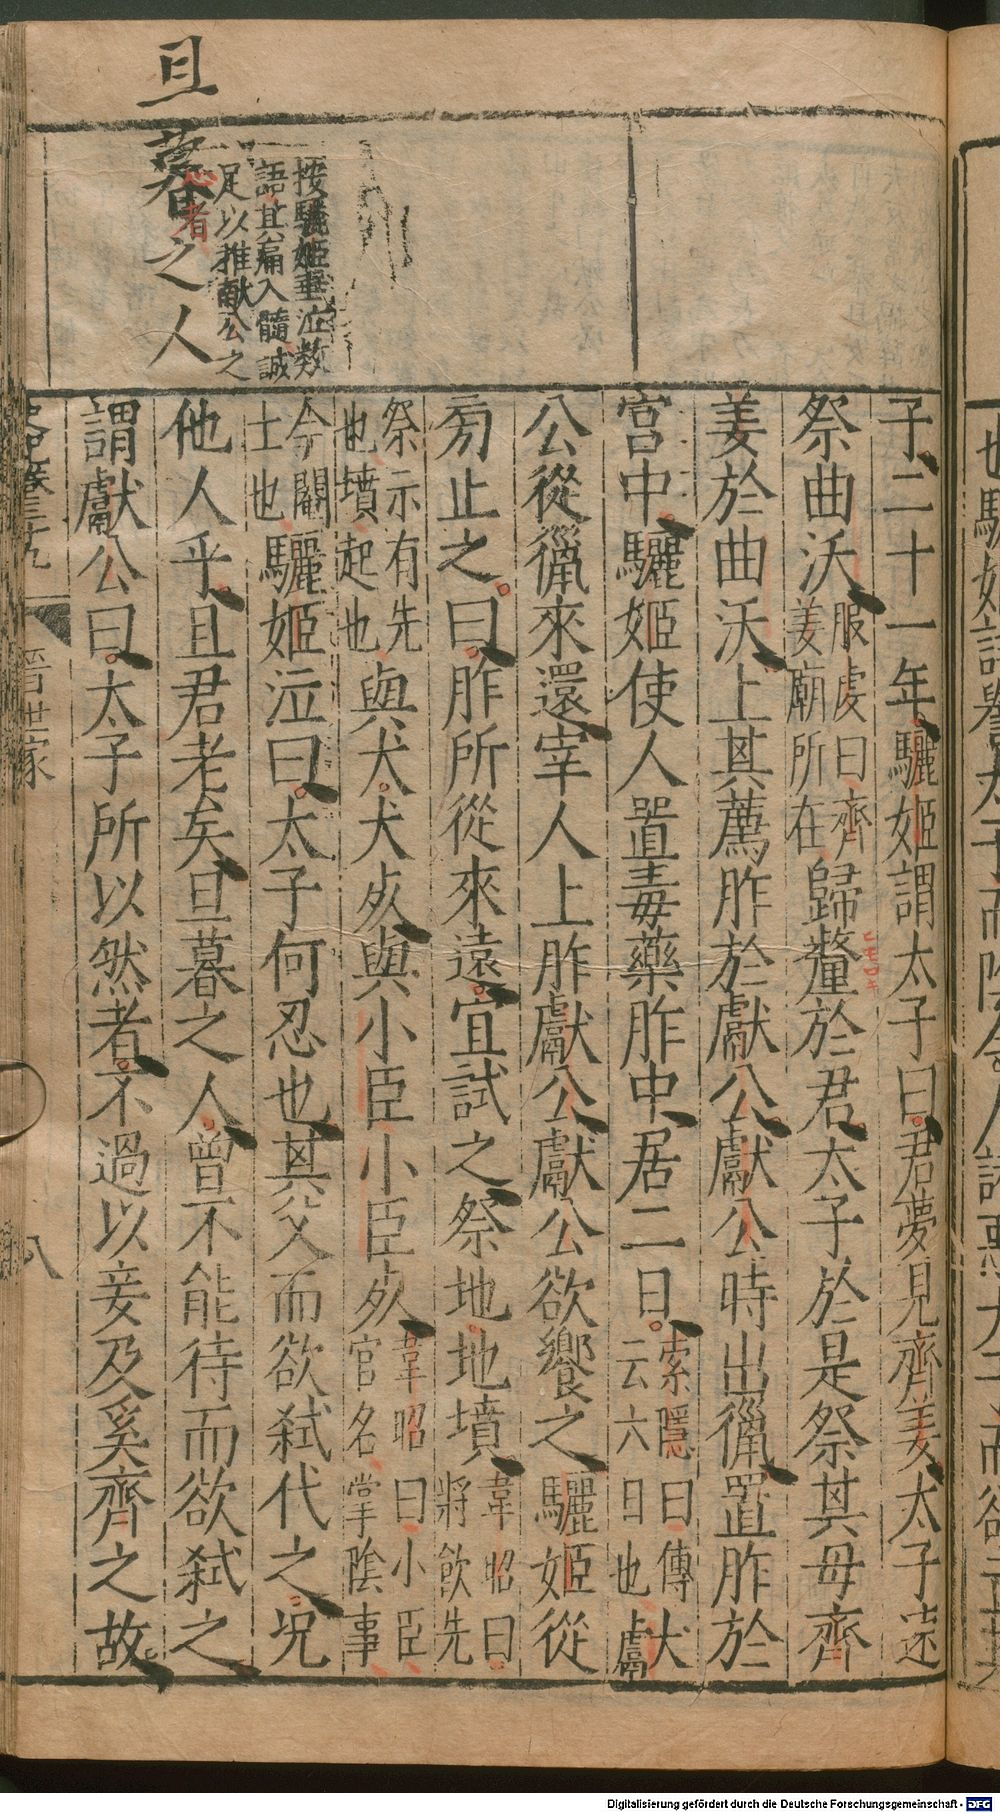 旦暮之人
按驪姬垂泣數
語其痛入髓誠
足以推獻公之
心者
子二十一年驪姬謂太子曰君夢見齊姜太子速
祭曲沃服虔曰齊姜廟所在歸釐於君太子於是祭其母齊
姜於曲沃上其薦胙於獻公獻公時出獵置胙於
宮中驪姬使人置毒藥胙中居二日索隱曰傳云六日也獻
公從獵來還宰人上胙獻公獻公欲饗之驪姬從
旁止之曰胙所從來遠宜試之祭地地墳韋昭曰將飲先
祭示有先也墳起也與犬犬死與小臣小臣死韋昭曰小臣官名掌陰事
今閹士也驪姬泣曰太子何忍也其父而欲弒代之况
他人乎且君老矣旦暮之人曾不能待而欲弒之
謂獻公曰太子所以然者不過以妾及奚齊之故
史記卷三十九
晋世家
八
Digitalisierung gefördert durch die Deutsche Forschungsgemeinschaft - DFG